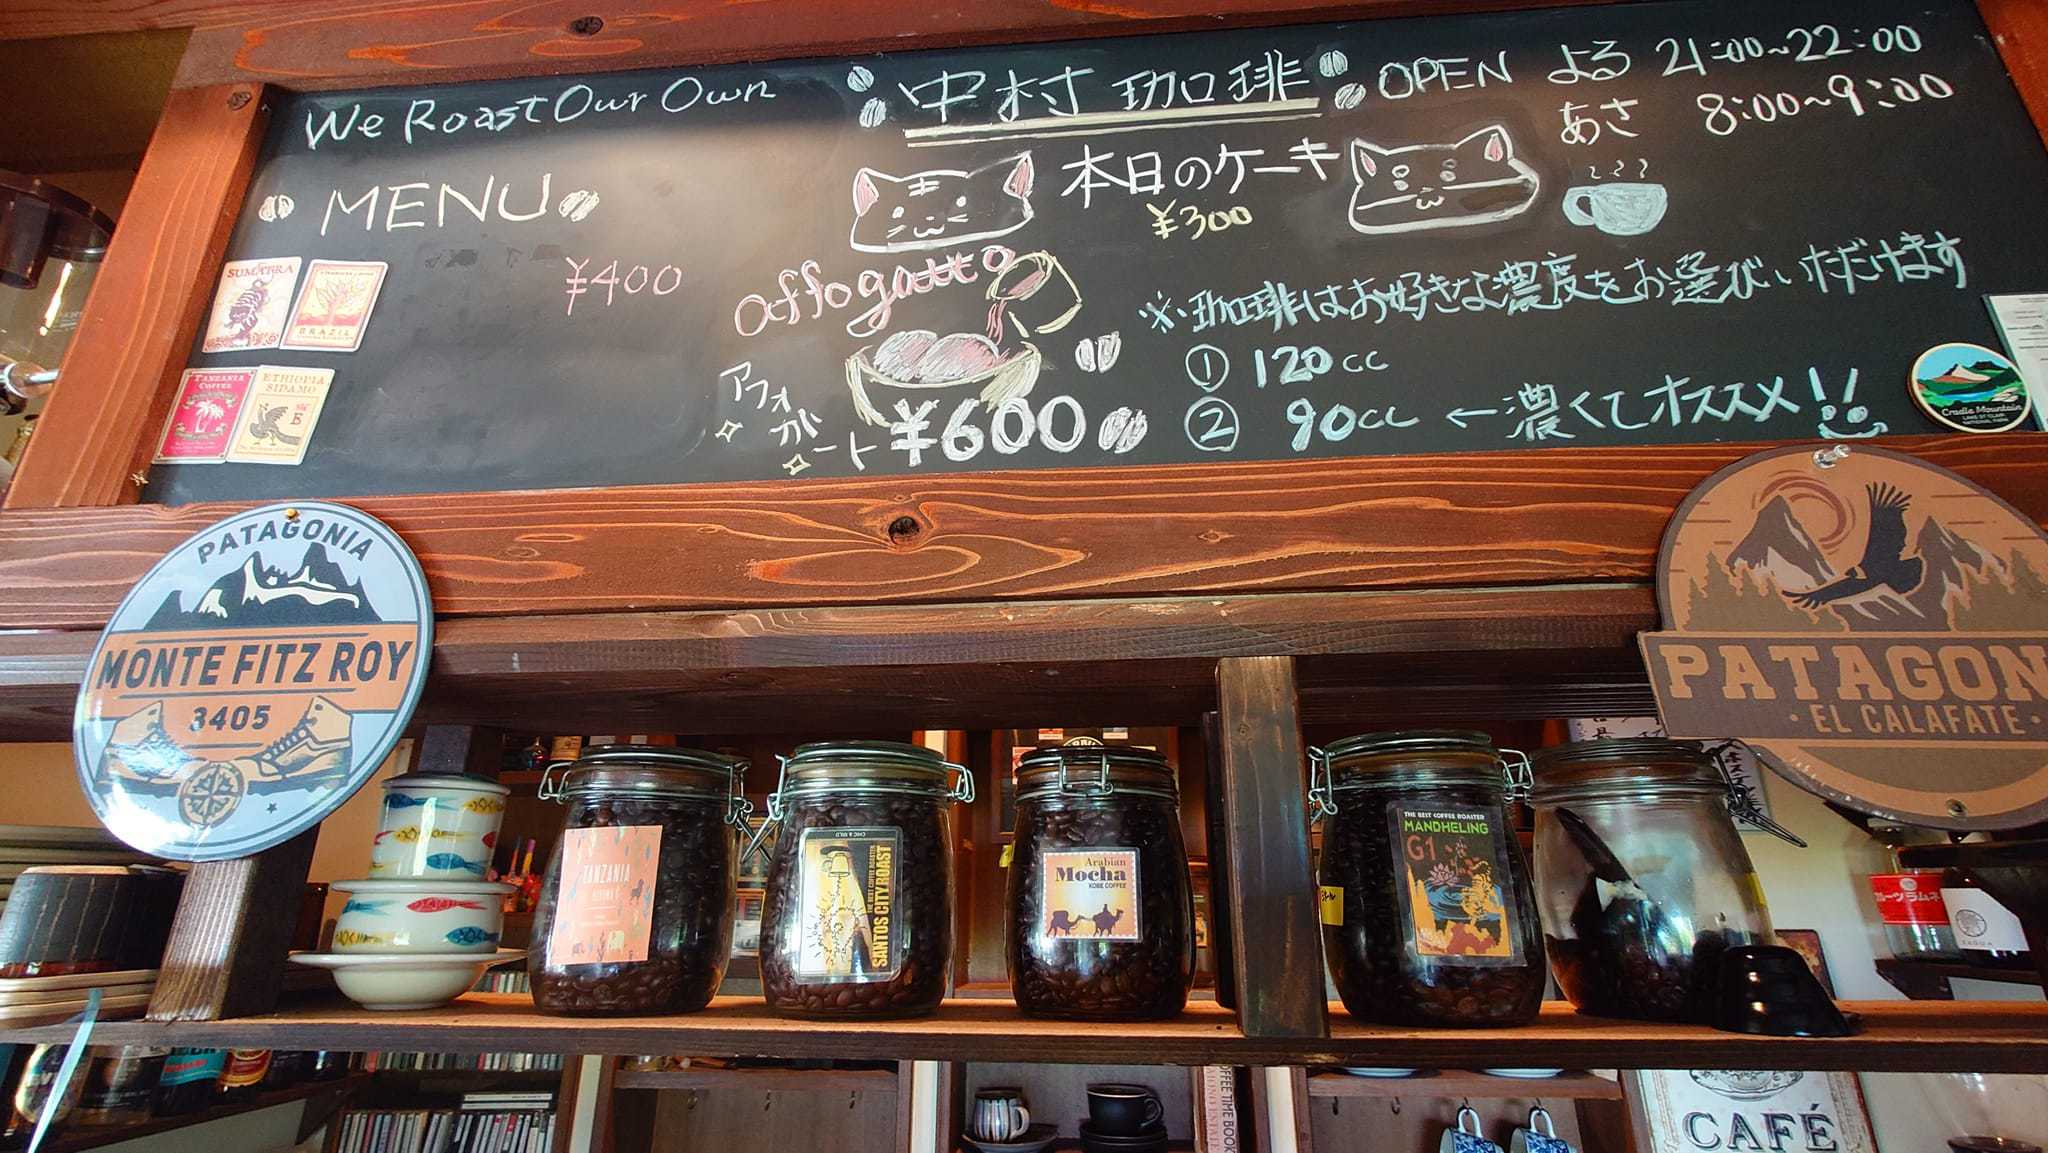 We Roast Our Own
中村珈琲
OPEN よる 21:00~22:00
あさ 8:00~9:00
MENU
¥400
本日のケーキ
¥300
affogatto
アフォガート ¥600
※珈琲はお好きな濃度をお選びいただけます
① 120cc
② 90cc ← 濃くてオススメ!!
SUMATRA
BRAZIL
TANZANIA
COFFEE
ETHIOPIA
SIDAMO
Cradle Mountain
LAKE ST CLAIR
NATIONAL PARK
PATAGONIA
MONTE FITZ ROY
3405
PATAGON
· EL CALAFATE ·
TANZANIA
CHIC & MILD
THE BEST COFFEE ROASTER
SANTOS CITY ROAST
Arabian
Mocha
KOBE COFFEE
THE BEST COFFEE ROASTER
MANDHELING
G1
COFFEE TIME BOOK
CAFÉ